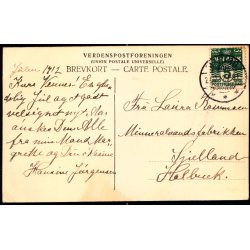 VERDENSPOSTFORENINGEN
(UNION POSTALE UNIVERSELLE)
BREVKORT - CARTE POSTALE.
Julen 1912
Kære Venner! En glæ-
delig Jul og et godt
velsignet nyt Aar
ønskes Dem Alle
fra min Mand
grethe og Deres
Hansine Jörgensen
Frü Laura Rasmussen
Mineralvandsfabrikken
Sjelland
Holbæk.
5